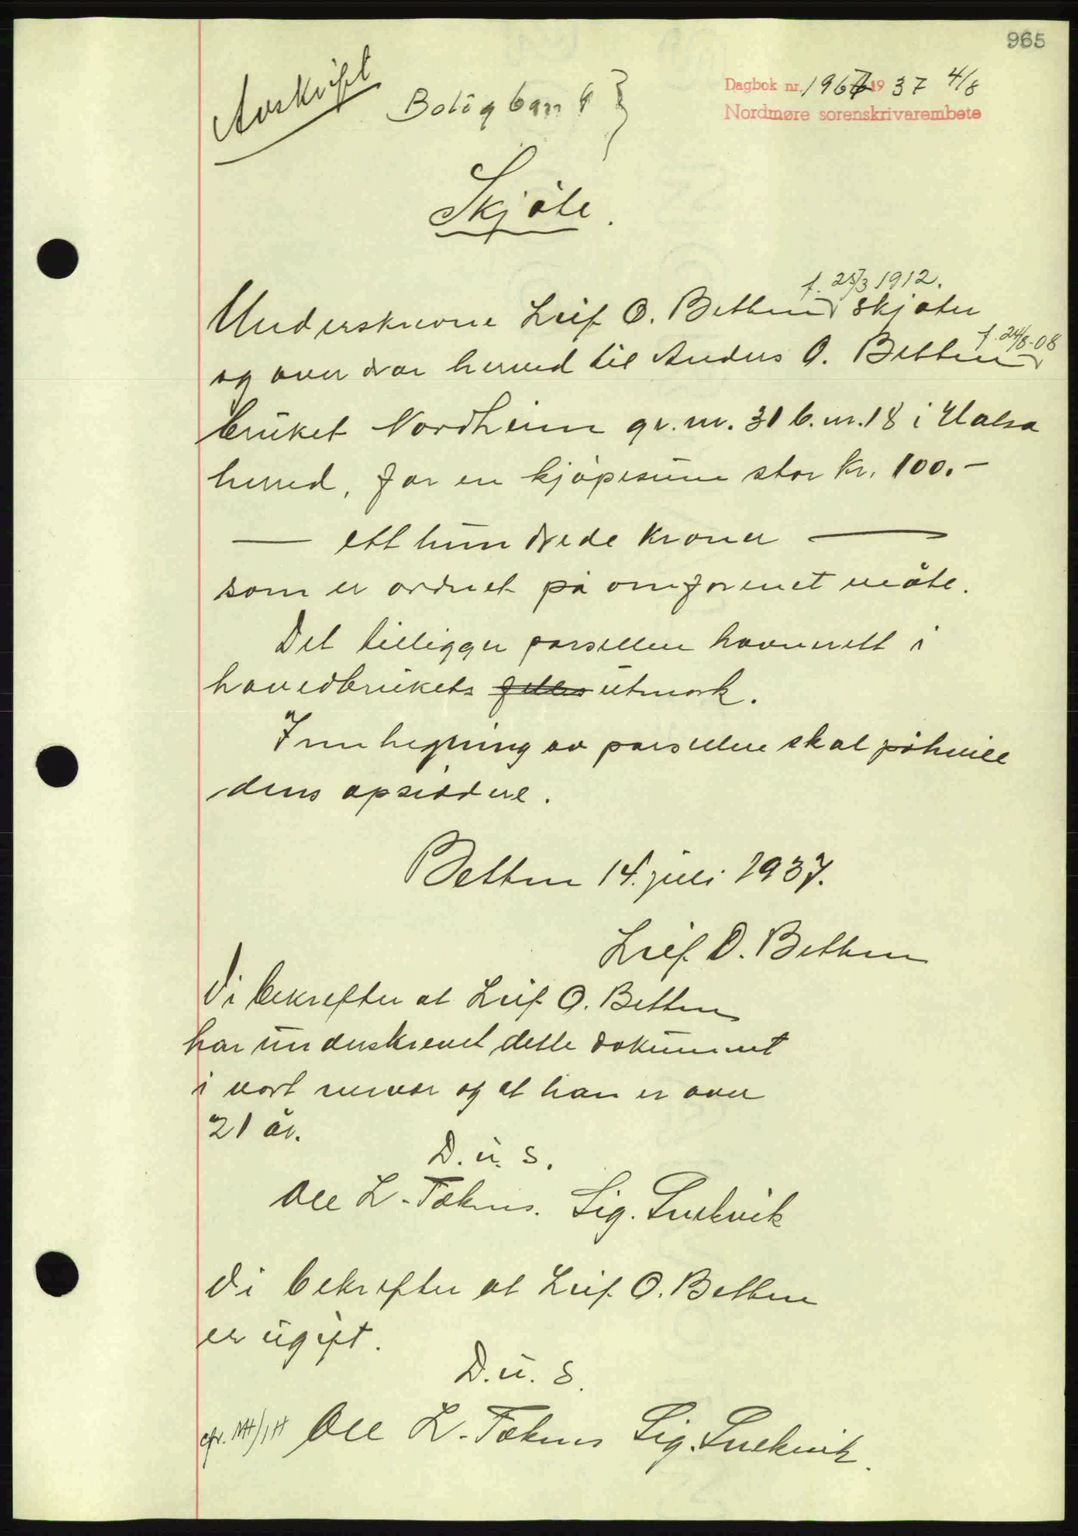 965
Avskrift
Dagbok nr. 1967 1937 4/8
Nordmøre sorenskrivarembete
Skjøte.
f. 25/3 1912.
Underskrevne Leif O. Betten skjøter
f. 24/8-08
og overdrar herved til Anders O. Betten
bruket Nordheim gr.nr. 31 b.nr. 18 i Halsa
herred, for en kjøpesum stor kr. 100.-
— ett hundrede kroner —
som er ordnet på omforenet måte.
Det tilligger parsellen havnerett i
hovedbrukets felles utmark.
Innhegning av parsellen skal påhvile
dens opsiddere.
Betten 14. juli 1937.
Leif O. Betten
Vi bekrefter at Leif O. Betten
har underskrevet dette dokument
i vort nærvær og at han er over
21 år.
D. u. s.
Ole L. Tøknes. Sig. Snekvik
Vi bekrefter at Leif O. Betten
er ugift.
D. u. s.
Ole L. Tøknes Sig. Snekvik.